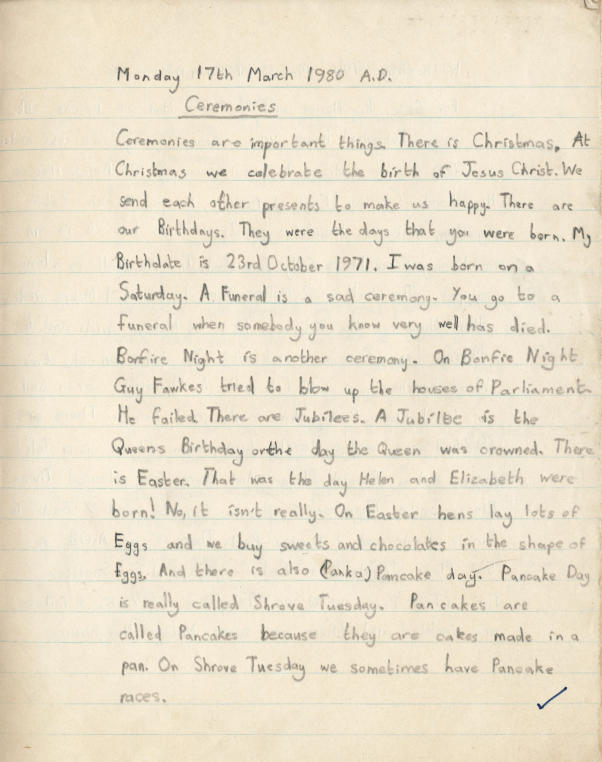 Monday 17th March 1980 A.D.
Ceremonies
Ceremonies are important things. There is Christmas. At
Christmas we celebrate the birth of Jesus Christ. We
send each other presents to make us happy. There are
our Birthdays. They were the days that you were born. My
Birthdate is 23rd October 1971. I was born on a
Saturday. A Funeral is a sad ceremony. You go to a
funeral when somebody you know very well has died.
Bonfire Night is another ceremony. On Bonfire Night
Guy Fawkes tried to blow up the houses of Parliament.
He failed. There are Jubilees. A Jubilee is the
Queens Birthday or the day the Queen was crowned. There
is Easter. That was the day Helen and Elizabeth were
born! No, it isn't really. On Easter hens lay lots of
Eggs and we buy sweets and chocolates in the shape of
Eggs. And there is also (Panka) Pancake day. Pancake Day
is really called Shrove Tuesday. Pancakes are
called Pancakes because they are cakes made in a
pan. On Shrove Tuesday we sometimes have Pancake
races.